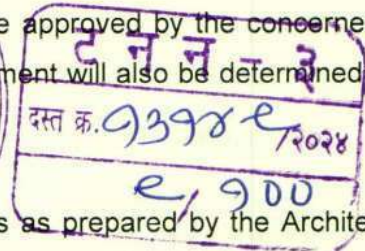 e approved by the concerne
ट न न - ३
ment will also be determined
दस्त क्र. १३१४९/२०२४
९/१००
s as prepared by the Archite